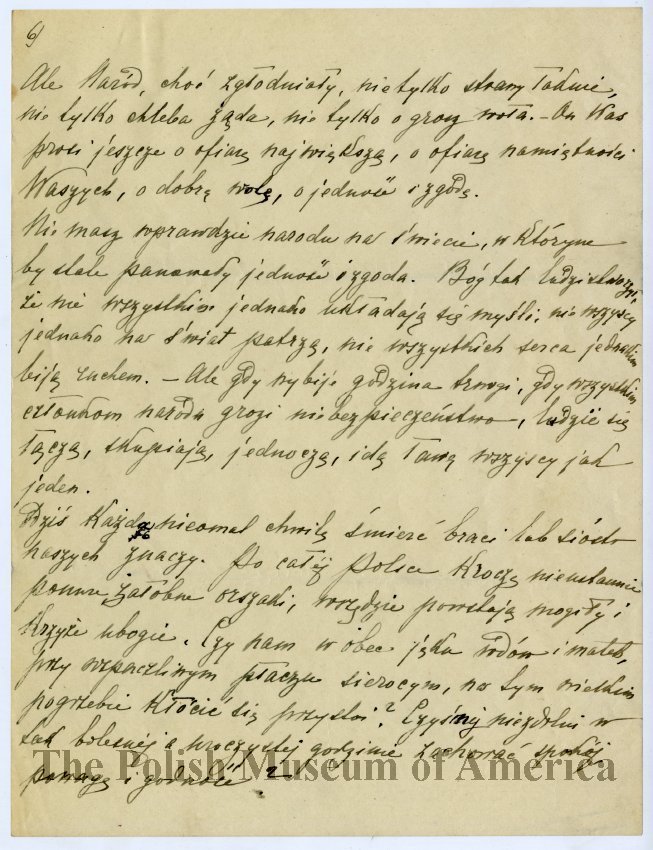 6)
Ale Naród, choć zgłodniały, nie tylko strawy łaknie,
nie tylko chleba żąda, nie tylko o grosz woła. – On Was
prosi jeszcze o ofiarę największą, o ofiarę namiętności
Waszych, o dobrą wolę, o jedność i zgodę.
Nie masz wprawdzie narodu na świecie, w którym
by stale panowały jedność i zgoda. Bóg tak ludzi stworzył,
że nie wszystkim jednako układają się myśli, nie wszyscy
jednako na świat patrzą, nie wszystkich serca jednakim
biją ruchem. – Ale gdy wybije godzina trwogi, gdy wszystkim
członkom narodu grozi niebezpieczeństwo, ludzie się
łączą, skupiają, jednoczą, idą ławą wszyscy jak
jeden.
Dziś każda nieomal chwila śmierć braci lub sióstr
naszych znaczy. Po całej Polsce kroczą nieustannie
ponure żałobne orszaki, wszędzie powstają mogiły i
krzyże ubogie. Czy nam wobec jęku wdów i matek,
przy rozpaczliwym płaczu sierocym, na tym wielkim
pogrzebie kłócić się przystoi? Czyśmy niezdolni w
tak bolesnej a uroczystej godzinie zachować spokój,
powagę i godność?
The Polish Museum of America